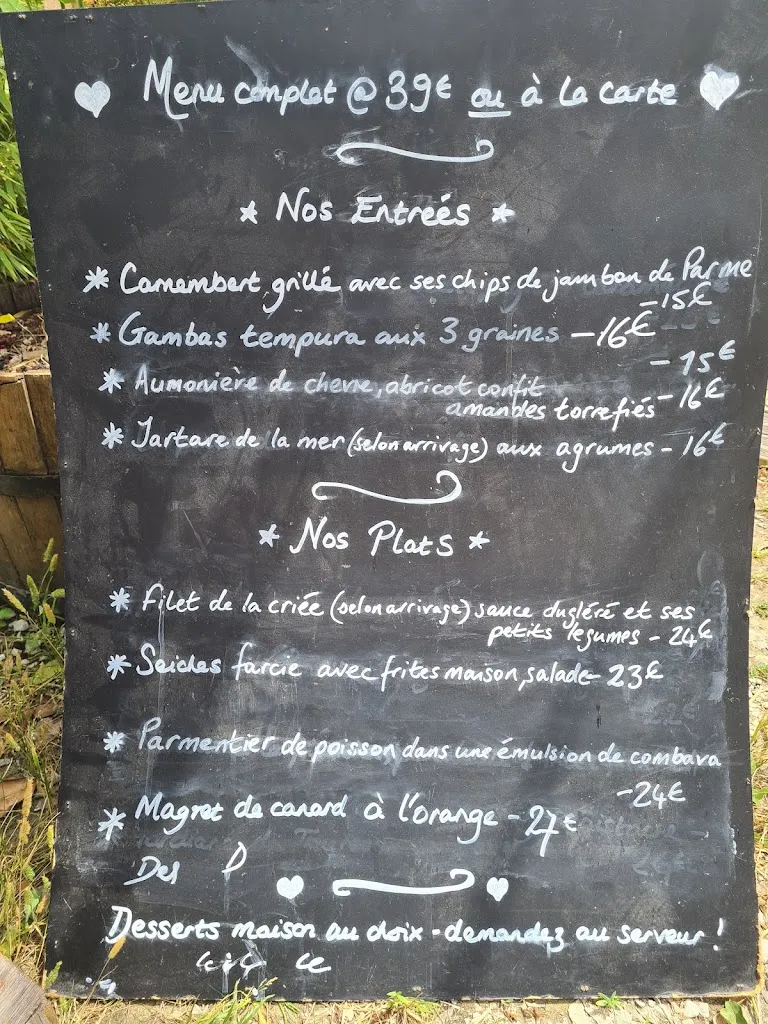 Menu complet @ 39€ ou à la carte
Nos Entreés
Camembert grillé avec ses chips de jambon de Parme
-15€
Gambas tempura aux 3 graines -16€
- 15€
Aumonière de chevre, abricot confit
amandes torrefiés - 16€
Tartare de la mer (selon arrivage) aux agrumes - 16€
Nos Plats
Filet de la criée (selon arrivage) sauce dugléré et ses
petits legumes - 24€
Seiches farcie avec frites maison, salade- 23€
Parmentier de poisson dans une émulsion de combava
-24€
Magret de canard à l'orange - 27€
Des
Desserts maison au choix - demandez au serveur !